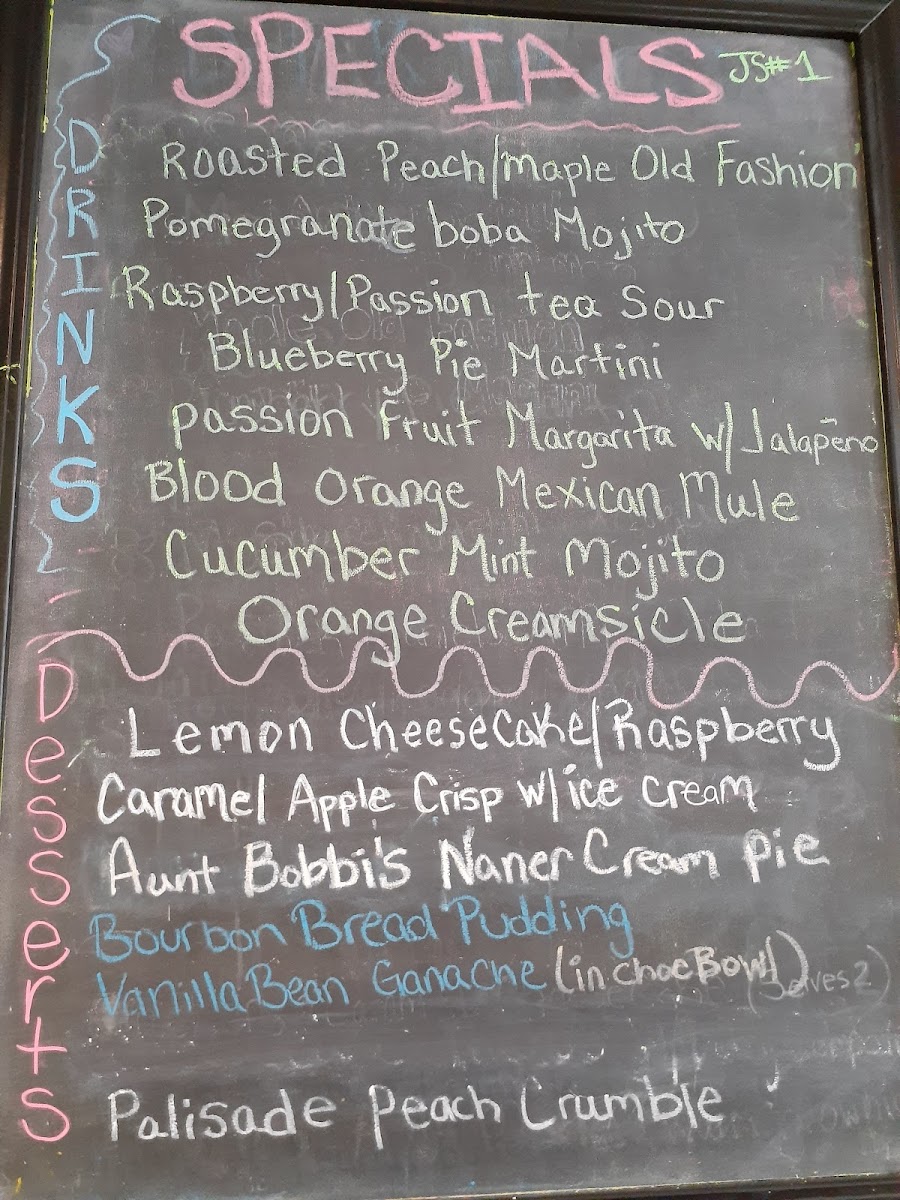 SPECIALS JS#1
DRINKS
Roasted Peach/maple Old Fashion
Pomegranate boba Mojito
Raspberry/Passion tea Sour
Blueberry Pie Martini
Passion Fruit Margarita w/Jalapeño
Blood Orange Mexican Mule
Cucumber Mint Mojito
Orange Creamsicle
Desserts
Lemon CheeseCake/Raspberry
Caramel Apple Crisp w/ice cream
Aunt Bobbi's Naner Cream Pie
Bourbon Bread Pudding
Vanilla Bean Ganache (in choc Bowl) (Serves 2)
Palisade Peach Crumble